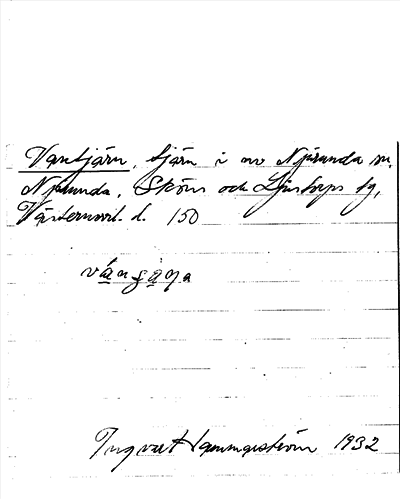 Vantjärn, tjärn i nv Njurunda sn,
Njurunda, Sköns och Ljustorps tg,
Västernorrl. l. 150
Ingvar Hammarström 1932